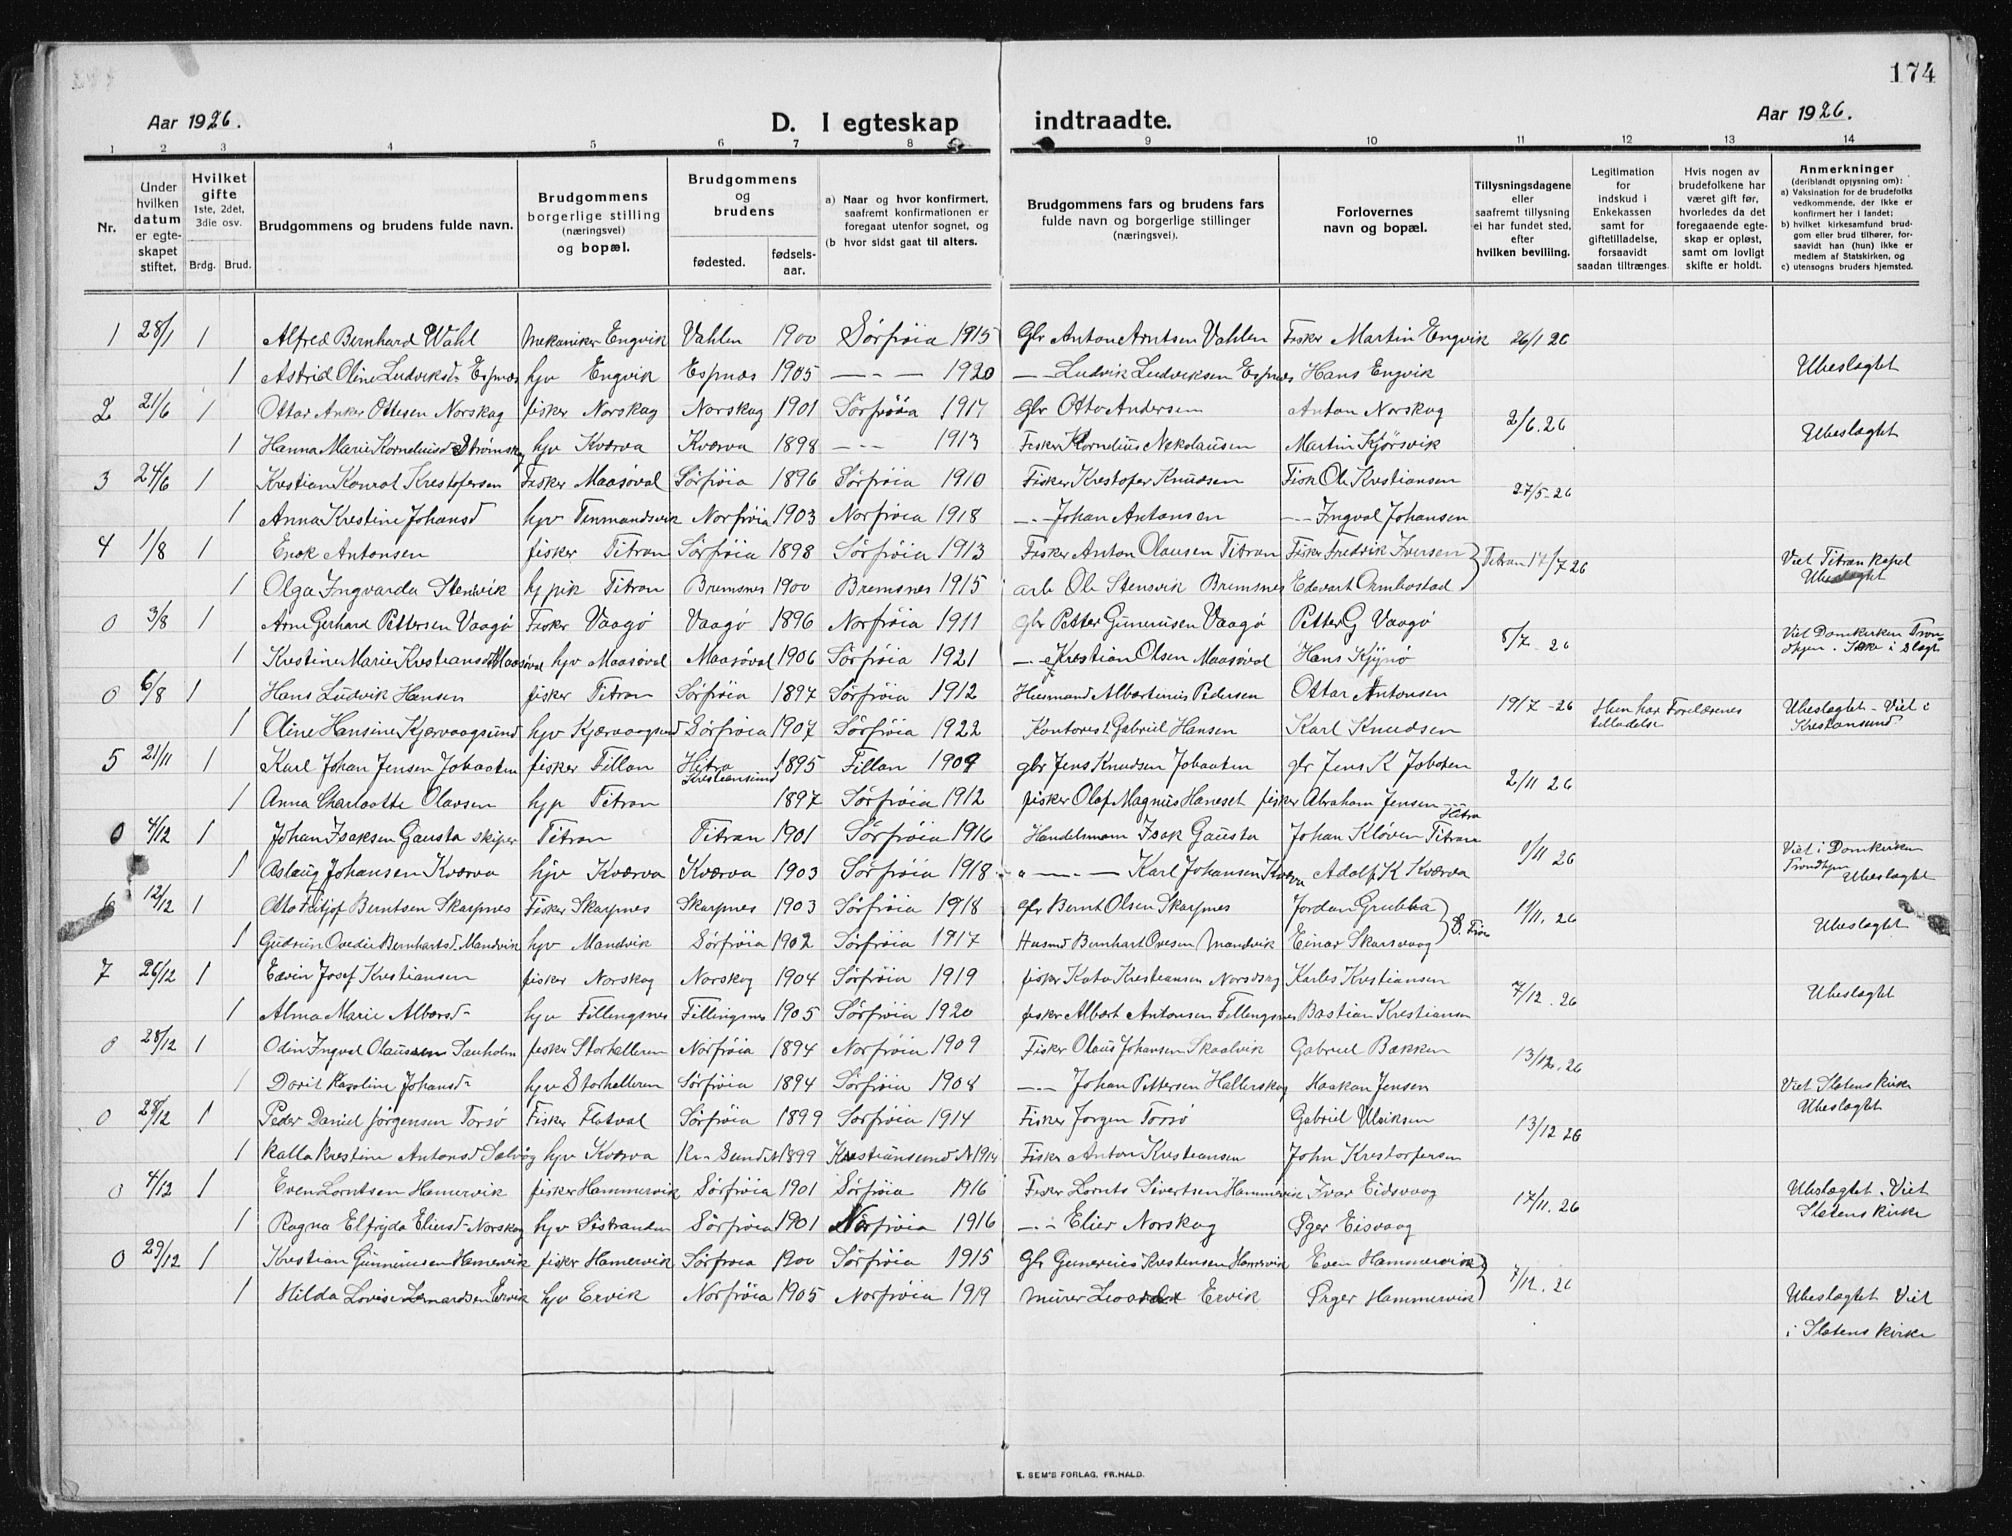 174
Aar 1926.
D. I egteskap indtraadte.
Aar 1926.
1 2 3 4 5 6 7 8 9 10 11 12 13 14
Nr.
Under hvilken datum er egteskapet stiftet.
Hvilket gifte 1ste, 2det, 3die osv.
Brdg. Brud.
Brudgommens og brudens fulde navn.
Brudgommens borgerlige stilling (næringsvei) og bopæl.
Brudgommens og brudens
fødested. fødselsaar.
a) Naar og hvor konfirmert, saafremt konfirmationen er foregaat utenfor sognet, og
(b hvor sidst gaat til alters.
Brudgommens fars og brudens fars fulde navn og borgerlige stillinger (næringsvei).
Forlovernes navn og bopæl.
Tillysningsdagene eller saafremt tillysning ei har fundet sted, efter hvilken bevilling.
Legitimation for indskud i Enkekassen samt for giftetilladelse, forsaavidt saadan tiltrænges.
Hvis nogen av brudefolkene har været gift før, hvorledes da det foregaaende egteskap er opløst, samt om lovligt skifte er holdt.
Anmerkninger (deriblandt opjysning om): a) Vaksination for de brudefolks vedkommende, der ikke er konfirmert her i landet; b) hvilket kirkesamfund brudgom eller brud tilhører, forsaavidt han (hun) ikke er medlem af Statskirken, og c) utensogns bruders hjemsted.
1 28/1 1 Alfred Bernhard Wahl Mekaniker Engvik Vahlen 1900 Sørfrøia 1915 Gbr Anton Arntsen Vahlen Fisker Martin Engvik 26/1 26
1 Astrid Oline Ludviksd- Espnæs hjv Engvik Espnæs 1905 — - — 1920 — Ludvik Ludviksen Espnæs Hans Engvik Ubeslagtet
2 21/6 1 Ottar Anker Ottesen Norskag fisker Norskag Norskag 1901 Sørfrøia 1917 gbr Otto Andersen Anton Norskag 2/6.26
1 Hanna Marie Korneliusd Strømskag hjv Kværva Kværva 1898 — - 1913 Fisker Kornelius Nekolausen Martin Kjørsvik Ubeslagtet
3 24/6 1 Krestian Konrat Krestofersen Fisker Maasøval Sørfrøia 1896 Sørfrøia 1910 Fisker Krestofer Knudsen Fisk Ole Krestiansen 27/5-26
1 Anna Krestine Johansd hjv Tinmandsvik Norfrøia 1903 Norfrøia 1918 — - Johan Antonsen — - Ingval Johansen
4 1/8 1 Enok Antonsen fisker Titran Sørfrøia 1898 Sørfrøia 1913 Fisker Anton Olausen Titran Fisker Fredrik Iversen Titran 17/7 26 Viet Titran kapel
1 Olga Ingvarda Stensvik hjpik Titran Bremsnes 1900 Bremsnes 1915 arb Ole Stensvik Bremsnes Edevart Ormbostad Ubeslagtet
0 3/8 1 Arne Gerhard Pettersen Vaagø Fisker Vaagø Vaagø 1896 Norfrøia 1911 gbr Petter Gunerusen Vaagø Petter G Vaagø 8/7 - 26 Viet Domkirken Tron-
1 Krestine Marie Krestiansd Maasøval hjv Maasøval Maasøval 1906 Sørfrøia 1921 — - Krestian Olsen Maasøval Hans Kjynø dhjem. Ikke i Slagt
0 6/8 1 Hans Ludvik Hansen fisker Titran Sørfrøia 1897 Sørfrøia 1912 Husmand Albertinus Pedersen Ottar Antonsen 19/7 - 26 Hun har Forelærenes tilladelse Ubeslagtet - Viet i
1 Oline Hansine Kjærvaagsund hjv Kjærvaagsund Sørfrøia 1907 Sørfrøia 1922 Kontorist Gabriel Hansen Karl Knudsen Krestansund
5 21/11 1 Karl Johan Jensen Jobotten fisker Fillan Hitra 1895 Fillan 1909 gbr Jens Knudsen Jobotten gbr Jens K Joboten 2/11 26
1 Anna Charlotte Olavsen hjp Titran Kristiansund 1897 Sørfrøia 1912 fisker Olaf Magnus Haneset fisker Abraham Jensen Hitra
0 4/12 1 Johan Isaksen Gausta skiper Titran Titran 1901 Sørfrøia 1916 Handelsmann Isak Gausta Johan Kløven Titran 1/11 26 Viet i Domkirken
1 Aslaug Johansen Kværva hjv Kværva Kværva 1903 Sørfrøia 1918 „ — - — Karl Johansen Kværva Adolf K Kværva Trondhjem Ubeslagtet
6 12/12 1 Otto Fritjof Berntsen Skarpnes Fisker Skarpnes Skarpnes 1903 Sørfrøia 1918 gbr Bernt Olsen Skarpnes Jordan Grubba 11/11. 26 Ubeslagtet
1 Gudrun Ovedie Bernhartsd. Mandvik hjv Mandvik Sørfrøia 1902 Sørfrøia 1917 Husmd Bernhart Ovesen Mandvik Einar Skarsvaag S. Frøi
7 26/12 1 Edvin Josef Krestiansen fisker Norskag Norskag 1904 Sørfrøia 1919 fisker Kato Krestiansen Norskag Karles Krestiansen 7/12. 26 Ubeslagtet
1 Alma Marie Albersd- hjv Fillingsnes Fillingsnes 1905 Sørfrøia 1920 fisker Albert Antonsen Fillingsnes Bastian Krestiansen
0 28/12 1 Odin Ingval Olaussen Sauholm fisker Storhalleren Norfrøia 1894 Norfrøia 1909 Fisker Olaus Johansen Skaalvik Gabriel Bækken 13/12. 26
1 Dorit Karoline Johansd- hjv Storhalleren Sørfrøia 1894 Sørfrøia 1908 — - Johan Pettersen Hallerskag Haakon Jensen Viet Sletens kirke
0 28/12 1 Peder Daniel Jørgensen Torsø Fisker Flatval Sørfrøia 1899 Sørfrøia 1914 Fisker Jørgen Torsø Gabriel Ulriksen 13/12 26 Ubeslagtet
1 Kalla Krestine Antonsd Salvåg hjv Kværva Kr-Sund N 1899 Krestiansund N 1914 Fisker Anton Krestiansen John Krestofersen
0 4/12 1 Even Lorntsen Hamervik fisker Hammervik Sørfrøia 1901 Sørfrøia 1916 Fisker Lornts Sivertsen Hammervik Ivar Eidsvaag 17/11. 26 Ubeslagtet. Viet
1 Ragna Elfryda Eliersd- Norskag hjv Sistranden Sørfrøia 1901 Norfrøia 1916 — - Elier Norskag Peger Eisvaag Sletens kirke
0 29/12 1 Krestian Gunneriusen Hamervik fisker Hamervik Sørfrøia 1900 Sørfrøia 1915 Gbr Gunerius Krestensen Hamervik Even Hammervik 7/12. 26
1 Hilda Lovise Lenardsen Ervik hjv Ervik Norfrøia 1905 Norfrøia 1919 Murer Leonardt Ervik Peger Hammervik Ubeslagtet Viet
i Sletens kirke
E. SEM'S FORLAG, FR.HALD.